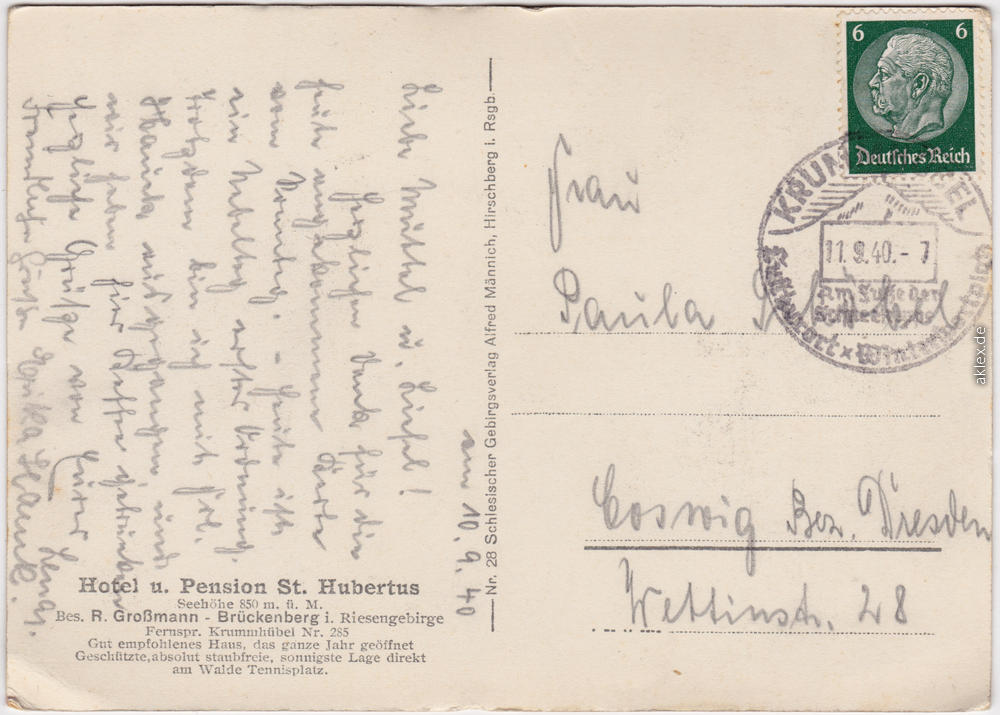 am 10.9.40
Liebe Mutter u. Liesel!
Herzlichen Dank für die
heute angekommene Karte
vom Sonntag. – Heute ist
ein Nebeltag erster Ordnung,
trotzdem bin ich mit Frl.
Hauck ausgegangen und
wir haben hier Kaffee getrunken
Herzliche Grüße von Eurer
Grüße Erika Hauck.
Hotel u. Pension St. Hubertus
Seehöhe 850 m. ü. M.
Bes. R. Großmann - Brückenberg i. Riesengebirge
Fernspr. Krummhübel Nr. 285
Gut empfohlenes Haus, das ganze Jahr geöffnet
Geschützte, absolut staubfreie, sonnigste Lage direkt
am Walde Tennisplatz.
Nr. 28 Schlesischer Gebirgsverlag Alfred Männich, Hirschberg i. Rsgb.
6 6
Deutsches Reich
KRUMMHÜBEL
11.9.40.-7
Am Fuße der
Schneekoppe
Luftkurort x Wintersportplatz
Frau
Paula
Coswig Bez. Dresden
Wettinstr. 28
aklex.de